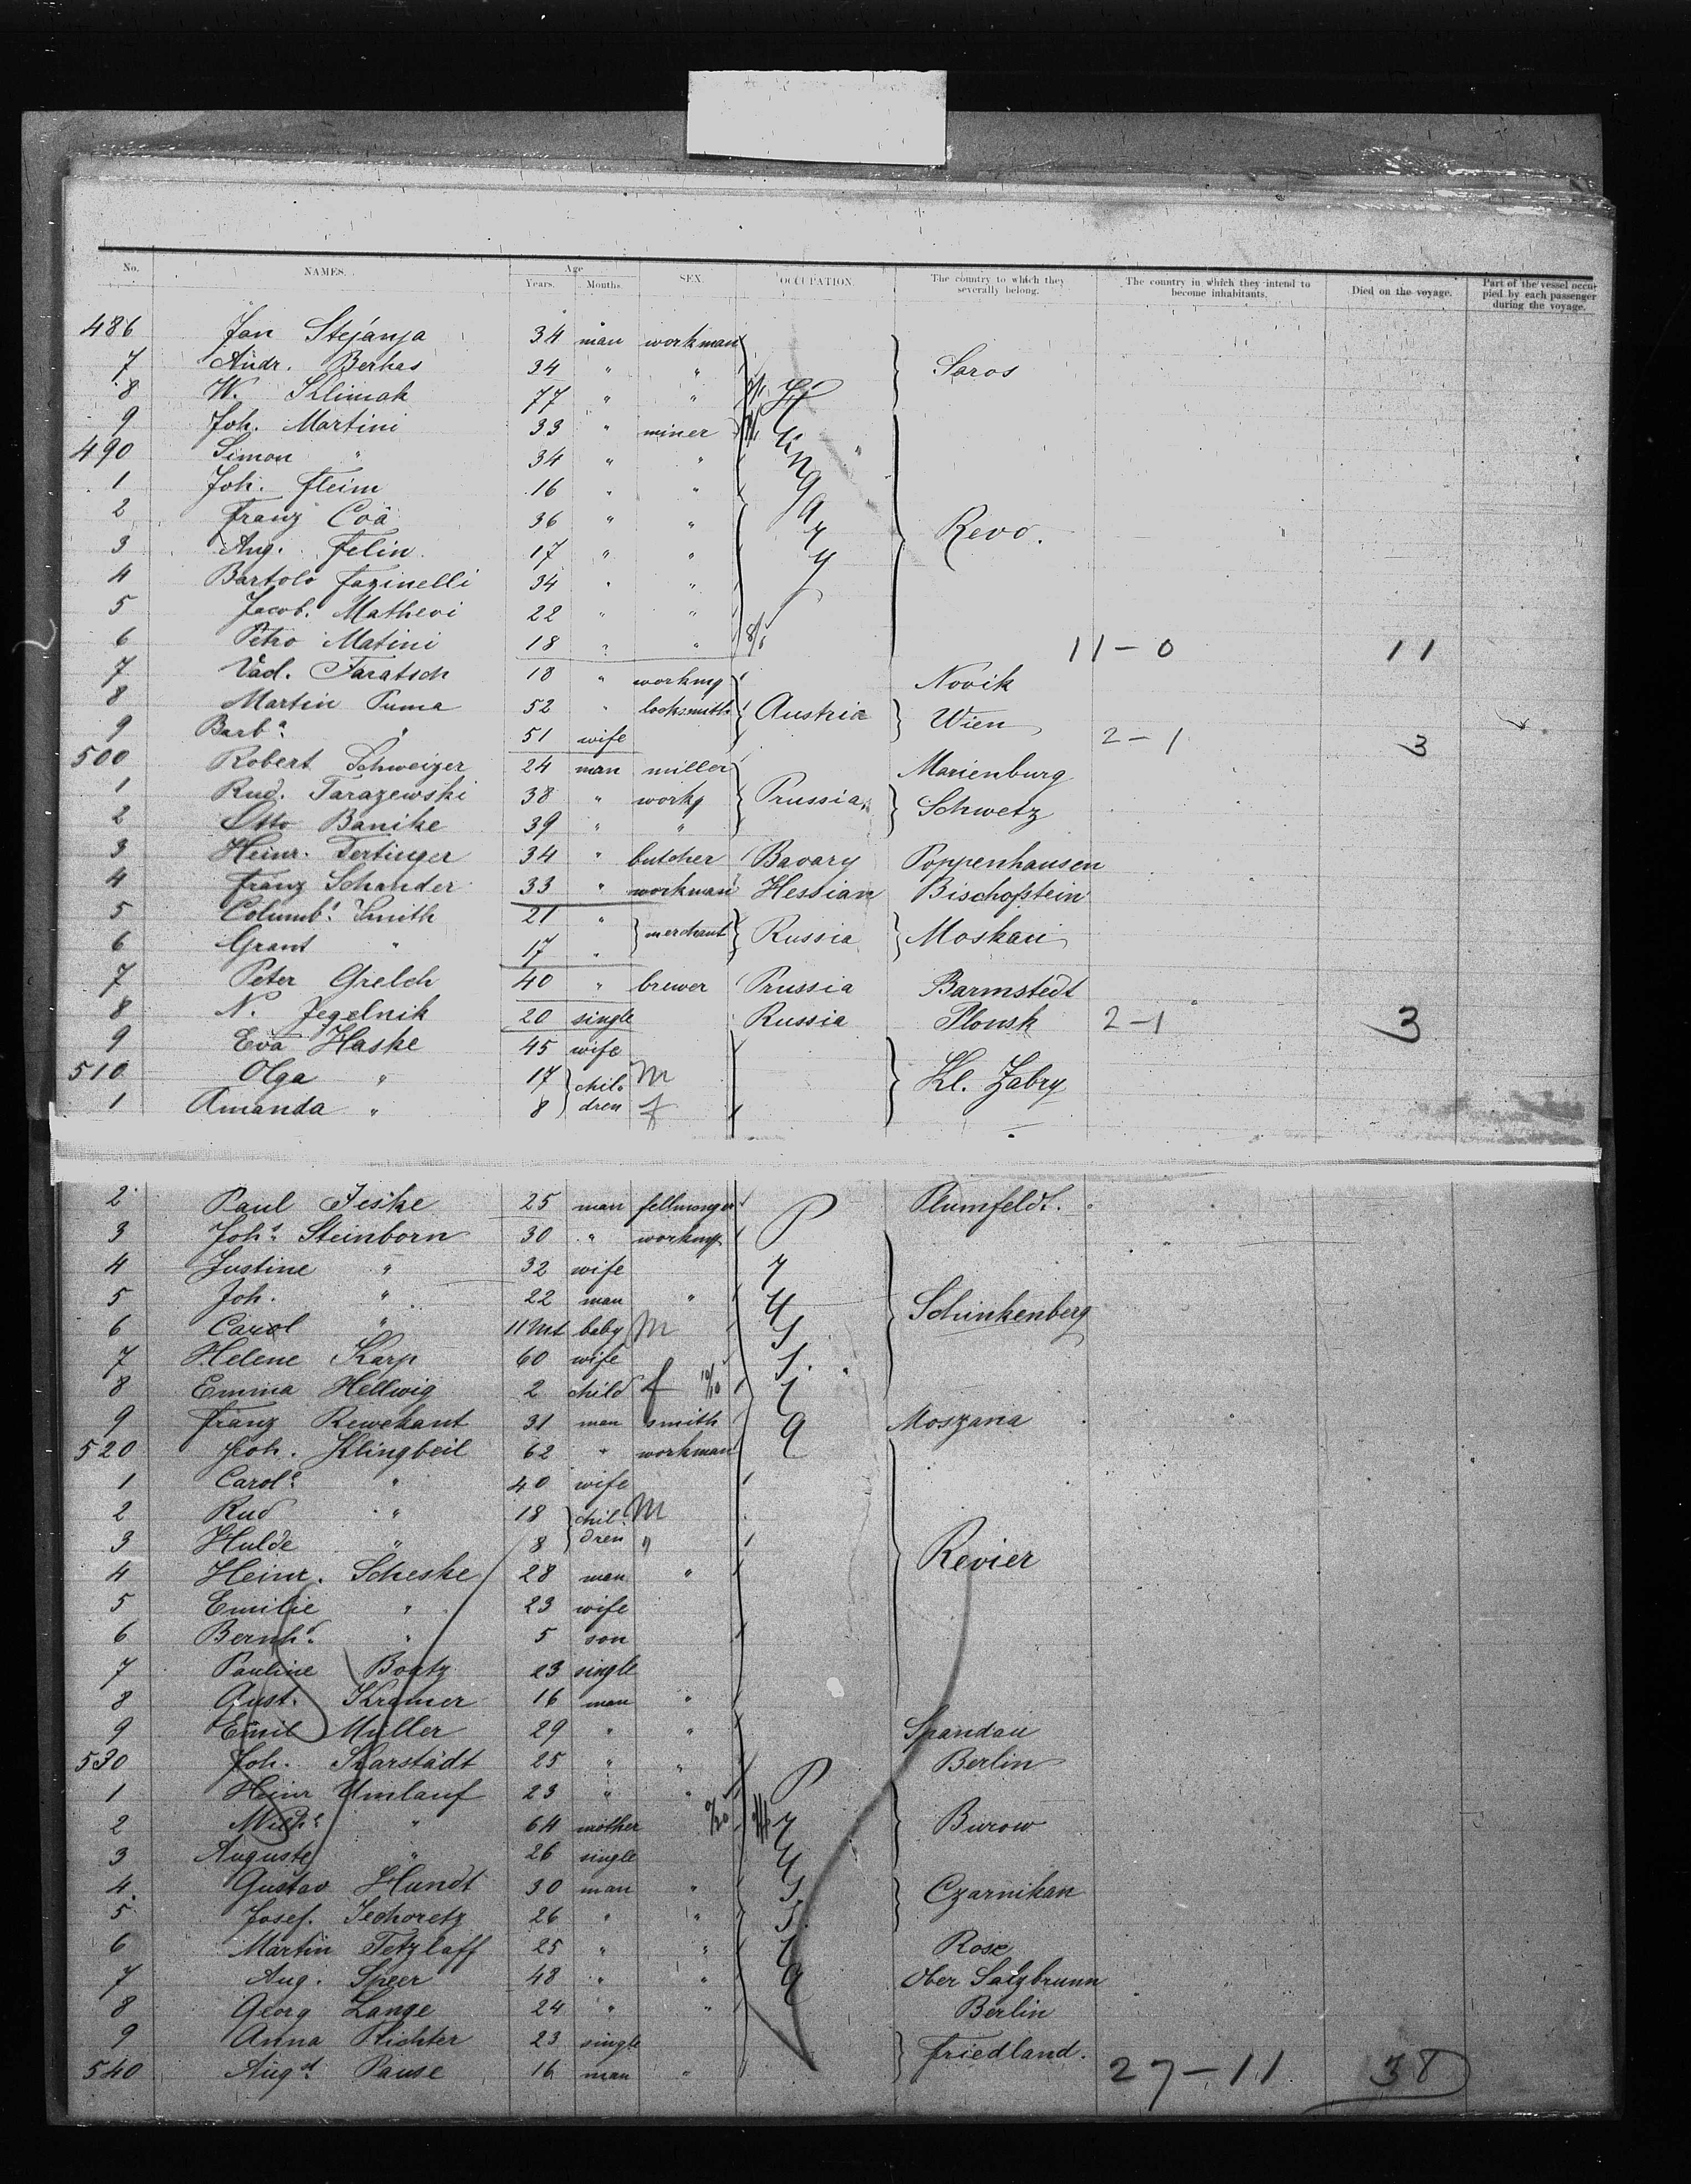 No. NAMES. Age Years. Months. SEX. OCCUPATION. The country to which they severally belong. The country in which they intend to become inhabitants. Died on the voyage. Part of the vessel occupied by each passenger during the voyage.
486 Jan Stejanja 34 man workman
7 Andr. Berkes 34 " " Saros
8 W. Klimak 77 " "
9 Joh. Martini 33 " miner Hungary
490 Simon " 34 " "
1 Joh. Fleim 16 " "
2 Franz Coa 36 " " Revo.
3 Aug. Felin 17 " "
4 Bartolo Fazinelli 34 " "
5 Jacob. Mathevi 22 " "
6 Petro Matini 18 " " 11-0 11
7 Vad. Taratsch 18 " workmg Novik
8 Martin Puma 52 " locksmith Austria Wien
9 Barba " 51 wife 2-1 3
500 Robert Schweizer 24 man miller Marienburg
1 Rud. Tarazewski 38 " workg Prussia Schwetz
2 Otto Banike 39 " "
3 Heinr. Tertinger 34 " butcher Bavary Poppenhausen
4 Franz Schander 33 " workman Hessian Bischofstein
5 Columbs Smith 21 " merchant Russia Moskau
6 Grant " 17 "
7 Peter Grelch 40 " brewer Prussia Barmstedt
8 N. Jegelnik 20 single Russia Plonsk 2-1 3
9 Eva Haske 45 wife
510 Olga " 17 chil- M Kl. Zabry
1 Amanda " 8 dren f
2 Paul Jeske 25 man fellmonger Prussia Plumfeldt.
3 Johs Steinborn 30 " workmg
4 Justine " 32 wife
5 Joh. " 22 man " Schinkenberg
6 Carol " 11 Mt baby M
7 Helene Karp 60 wife
8 Emma Hellwig 2 child f
9 Franz Rewekant 31 man smith Moszana
520 Joh. Klingbeil 62 " workman
1 Carole " 40 wife
2 Rud " 18 chil- M
3 Hulde " 8 dren "
4 Heinr. Scheske 28 man " Revier
5 Emilie " 23 wife
6 Bernhd " 5 son
7 Pauline Boatz 23 single
8 Aust. Kramer 16 man "
9 Emil Müller 29 " " Spandau
530 Joh. Karstädt 25 " " Berlin
1 Heinr Umlauf 23 " " Prussia
2 Wilhe " 64 mother Burow
3 Auguste " 26 single
4 Gustav Hundt 30 man " Czarnikan
5 Josef. Sechoretz 26 " "
6 Martin Tetzlaff 25 " " Rose
7 Aug. Speer 48 " " Ober Salzbrunn
8 Georg Lange 24 " " Berlin
9 Anna Richter 23 single Friedland.
540 Augst Pause 16 man " 27-11 38